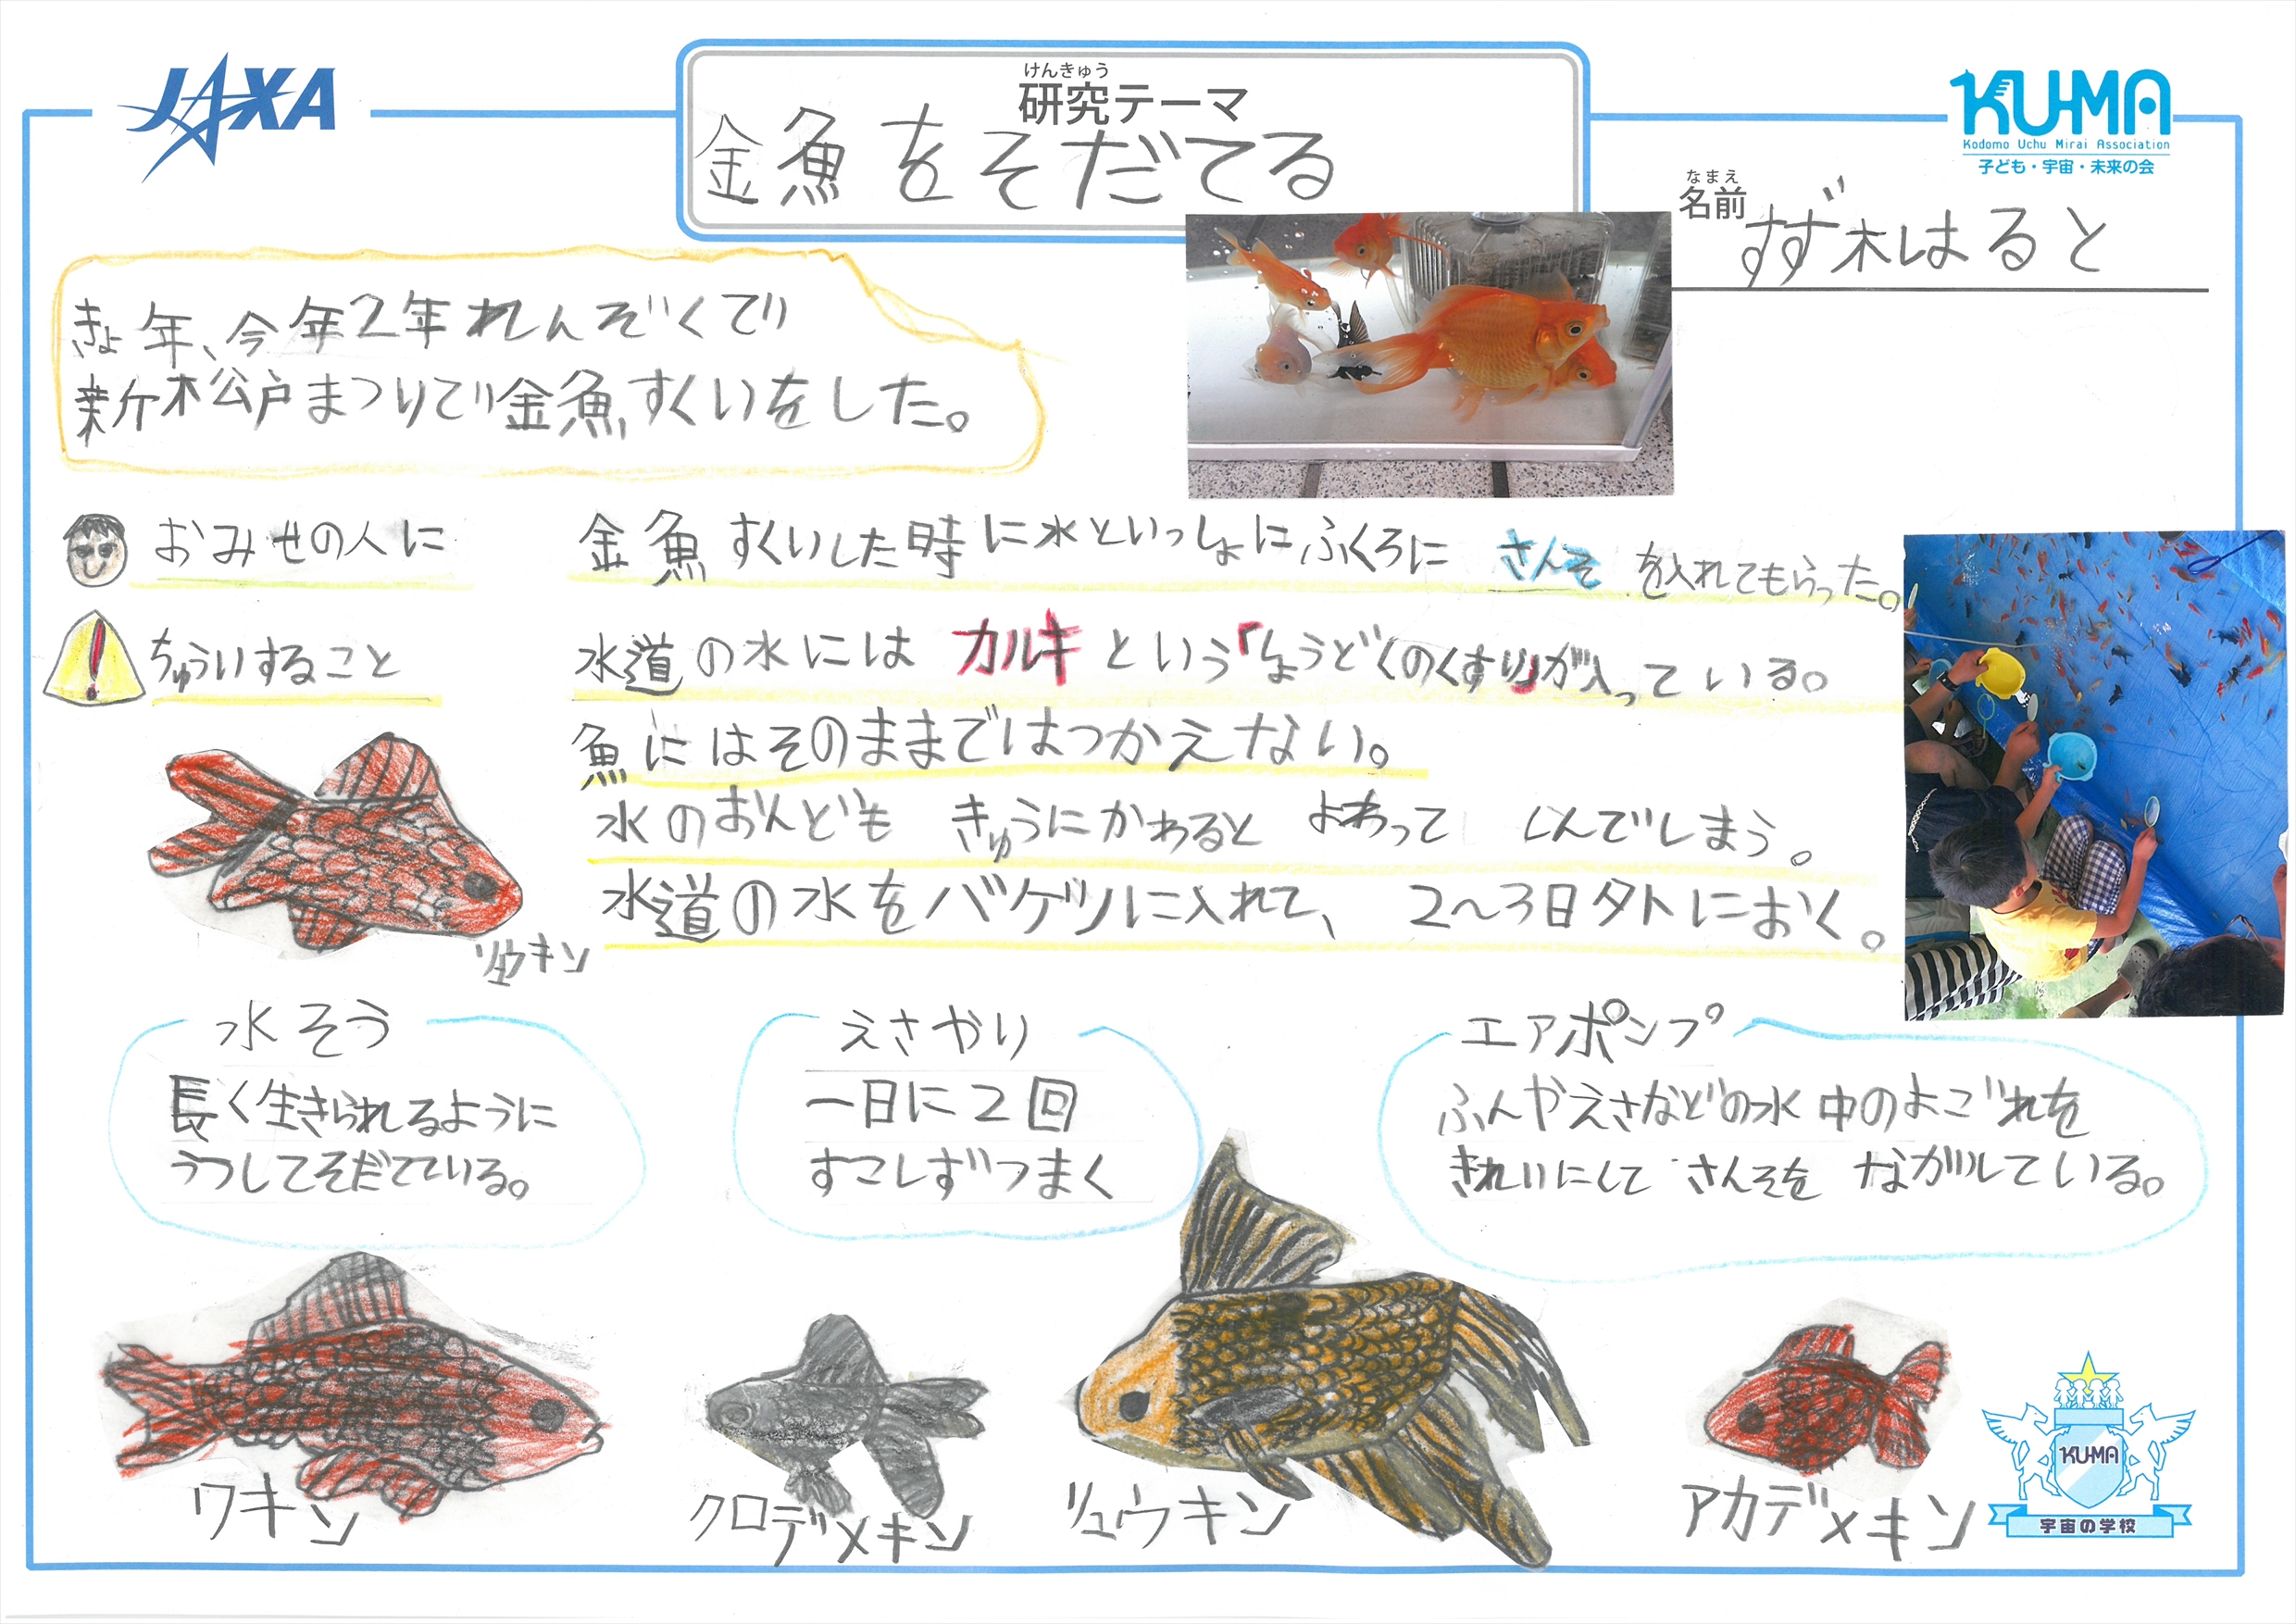 JAXA
けんきゅう
研究テーマ
金魚をそだてる
KUMA
Kodomo Uchu Mirai Association
子ども・宇宙・未来の会
なまえ
名前 すず木はると
きょ年、今年2年れんぞくで
新松戸まつりで金魚すくいをした。
おみせの人に 金魚すくいした時に水といっしょにふくろに さんそ を入れてもらった。
ちゅういすること 水道の水には カルキ という「しょうどくのくすり」が入っている。
魚にはそのままではつかえない。
水のおんども きゅうにかわると よわって しんでしまう。
水道の水をバケツに入れて、 2〜3日外におく。
リュウキン
水そう
長く生きられるように
うつしてそだてている。
えさやり
一日に2回
すこしずつまく
エアポンプ
ふんやえさなどの水中のよごれを
きれいにして さんそを ながしている。
ワキン
クロデメキン
リュウキン
アカデメキン
KUMA
宇宙の学校